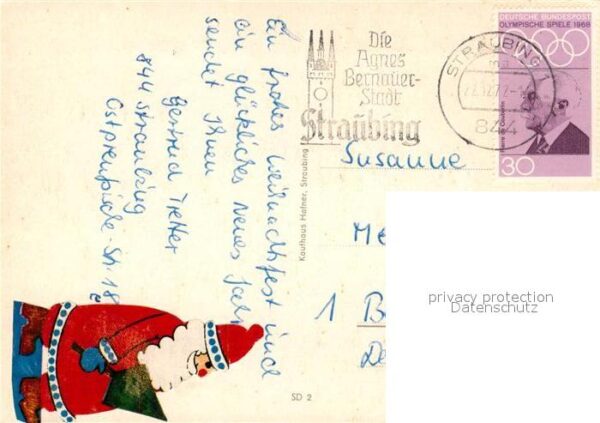 Ein frohes Weihnachtsfest und
ein glückliches neues Jahr
sendet Ihnen
Gertrud Tretter
844 Straubing
Ostpreußische-Str. 18
Die
Agnes
Bernauer-
Stadt
Straubing
STRAUBING
844
DEUTSCHE BUNDESPOST
OLYMPISCHE SPIELE 1968
30
Kaufhaus Hafner, Straubing
Susanne
Me
1 B
SD 2
privacy protection
Datenschutz